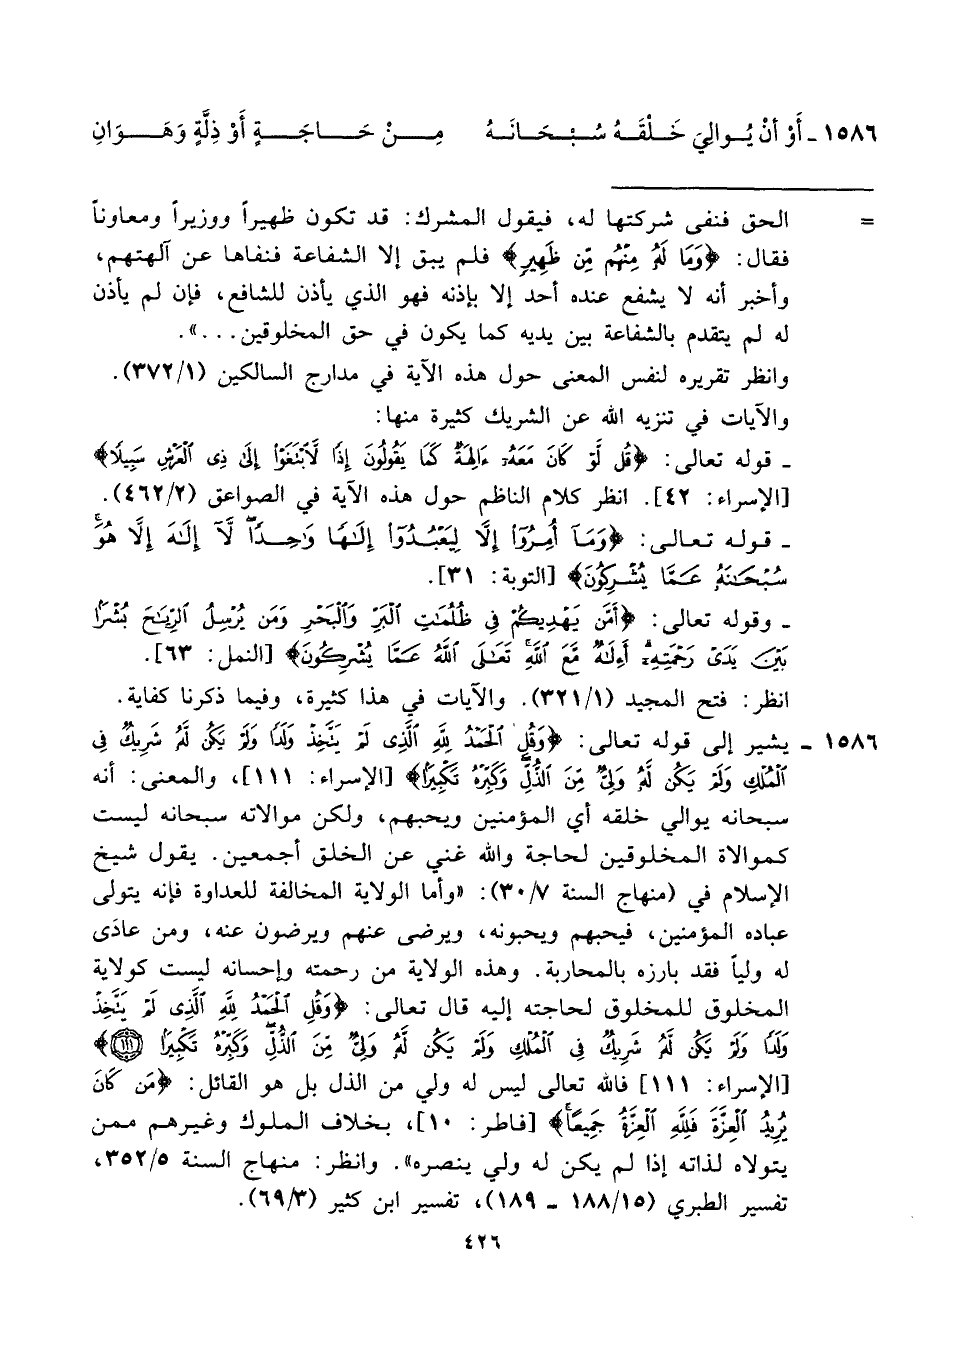 ١٥٨٦ ـ أَوْ أنْ يُـوالِيَ خَـلْقَـهُ سُـبْـحَـانَـهُ    مِـنْ حَـاجَـةٍ أَوْ ذِلَّةٍ وَهَـوَانِ
= الحق فنفى شركتها له، فيقول المشرك: قد تكون ظهيراً ووزيراً ومعاوناً
فقال: ﴿وَمَا لَهُۥ مِنْهُم مِّن ظَهِيرٍ﴾ فلم يبق إلا الشفاعة فنفاها عن آلهتهم،
وأخبر أنه لا يشفع عنده أحد إلا بإذنه فهو الذي يأذن للشافع، فإن لم يأذن
له لم يتقدم بالشفاعة بين يديه كما يكون في حق المخلوقين...».
وانظر تقريره لنفس المعنى حول هذه الآية في مدارج السالكين (٣٧٢/١).
والآيات في تنزيه الله عن الشريك كثيرة منها:
ـ قوله تعالى: ﴿قُل لَّوْ كَانَ مَعَهُۥٓ ءَالِهَةٌ كَمَا يَقُولُونَ إِذًا لَّٱبْتَغَوْا۟ إِلَىٰ ذِى ٱلْعَرْشِ سَبِيلًا﴾
[الإسراء: ٤٢]. انظر كلام الناظم حول هذه الآية في الصواعق (٤٦٢/٢).
ـ قوله تعالى: ﴿وَمَآ أُمِرُوٓا۟ إِلَّا لِيَعْبُدُوٓا۟ إِلَٰهًا وَٰحِدًا ۖ لَّآ إِلَٰهَ إِلَّا هُوَ ۚ
سُبْحَٰنَهُۥ عَمَّا يُشْرِكُونَ﴾ [التوبة: ٣١].
ـ وقوله تعالى: ﴿أَمَّن يَهْدِيكُمْ فِى ظُلُمَٰتِ ٱلْبَرِّ وَٱلْبَحْرِ وَمَن يُرْسِلُ ٱلرِّيَٰحَ بُشْرًۢا
بَيْنَ يَدَىْ رَحْمَتِهِۦٓ ۗ أَءِلَٰهٌ مَّعَ ٱللَّهِ ۚ تَعَٰلَى ٱللَّهُ عَمَّا يُشْرِكُونَ﴾ [النمل: ٦٣].
انظر: فتح المجيد (٣٢١/١). والآيات في هذا كثيرة، وفيما ذكرنا كفاية.
١٥٨٦ ـ يشير إلى قوله تعالى: ﴿وَقُلِ ٱلْحَمْدُ لِلَّهِ ٱلَّذِى لَمْ يَتَّخِذْ وَلَدًا وَلَمْ يَكُن لَّهُۥ شَرِيكٌ فِى
ٱلْمُلْكِ وَلَمْ يَكُن لَّهُۥ وَلِىٌّ مِّنَ ٱلذُّلِّ ۖ وَكَبِّرْهُ تَكْبِيرًۢا﴾ [الإسراء: ١١١]، والمعنى: أنه
سبحانه يوالي خلقه أي المؤمنين ويحبهم، ولكن موالاته سبحانه ليست
كموالاة المخلوقين لحاجة والله غني عن الخلق أجمعين. يقول شيخ
الإسلام في (منهاج السنة ٣٠/٧): «وأما الولاية المخالفة للعداوة فإنه يتولى
عباده المؤمنين، فيحبهم ويحبونه، ويرضى عنهم ويرضون عنه، ومن عادَى
له ولياً فقد بارزه بالمحاربة. وهذه الولاية من رحمته وإحسانه ليست كولاية
المخلوق للمخلوق لحاجته إليه قال تعالى: ﴿وَقُلِ ٱلْحَمْدُ لِلَّهِ ٱلَّذِى لَمْ يَتَّخِذْ
وَلَدًا وَلَمْ يَكُن لَّهُۥ شَرِيكٌ فِى ٱلْمُلْكِ وَلَمْ يَكُن لَّهُۥ وَلِىٌّ مِّنَ ٱلذُّلِّ ۖ وَكَبِّرْهُ تَكْبِيرًۢا ١١١﴾
[الإسراء: ١١١] فالله تعالى ليس له ولي من الذل بل هو القائل: ﴿مَن كَانَ
يُرِيدُ ٱلْعِزَّةَ فَلِلَّهِ ٱلْعِزَّةُ جَمِيعًا ۚ﴾ [فاطر: ١٠]، بخلاف الملوك وغيرهم ممن
يتولاه لذاته إذا لم يكن له ولي ينصره». وانظر: منهاج السنة ٣٥٢/٥،
تفسير الطبري (١٨٨/١٥ ـ ١٨٩)، تفسير ابن كثير (٦٩/٣).
٤٢٦